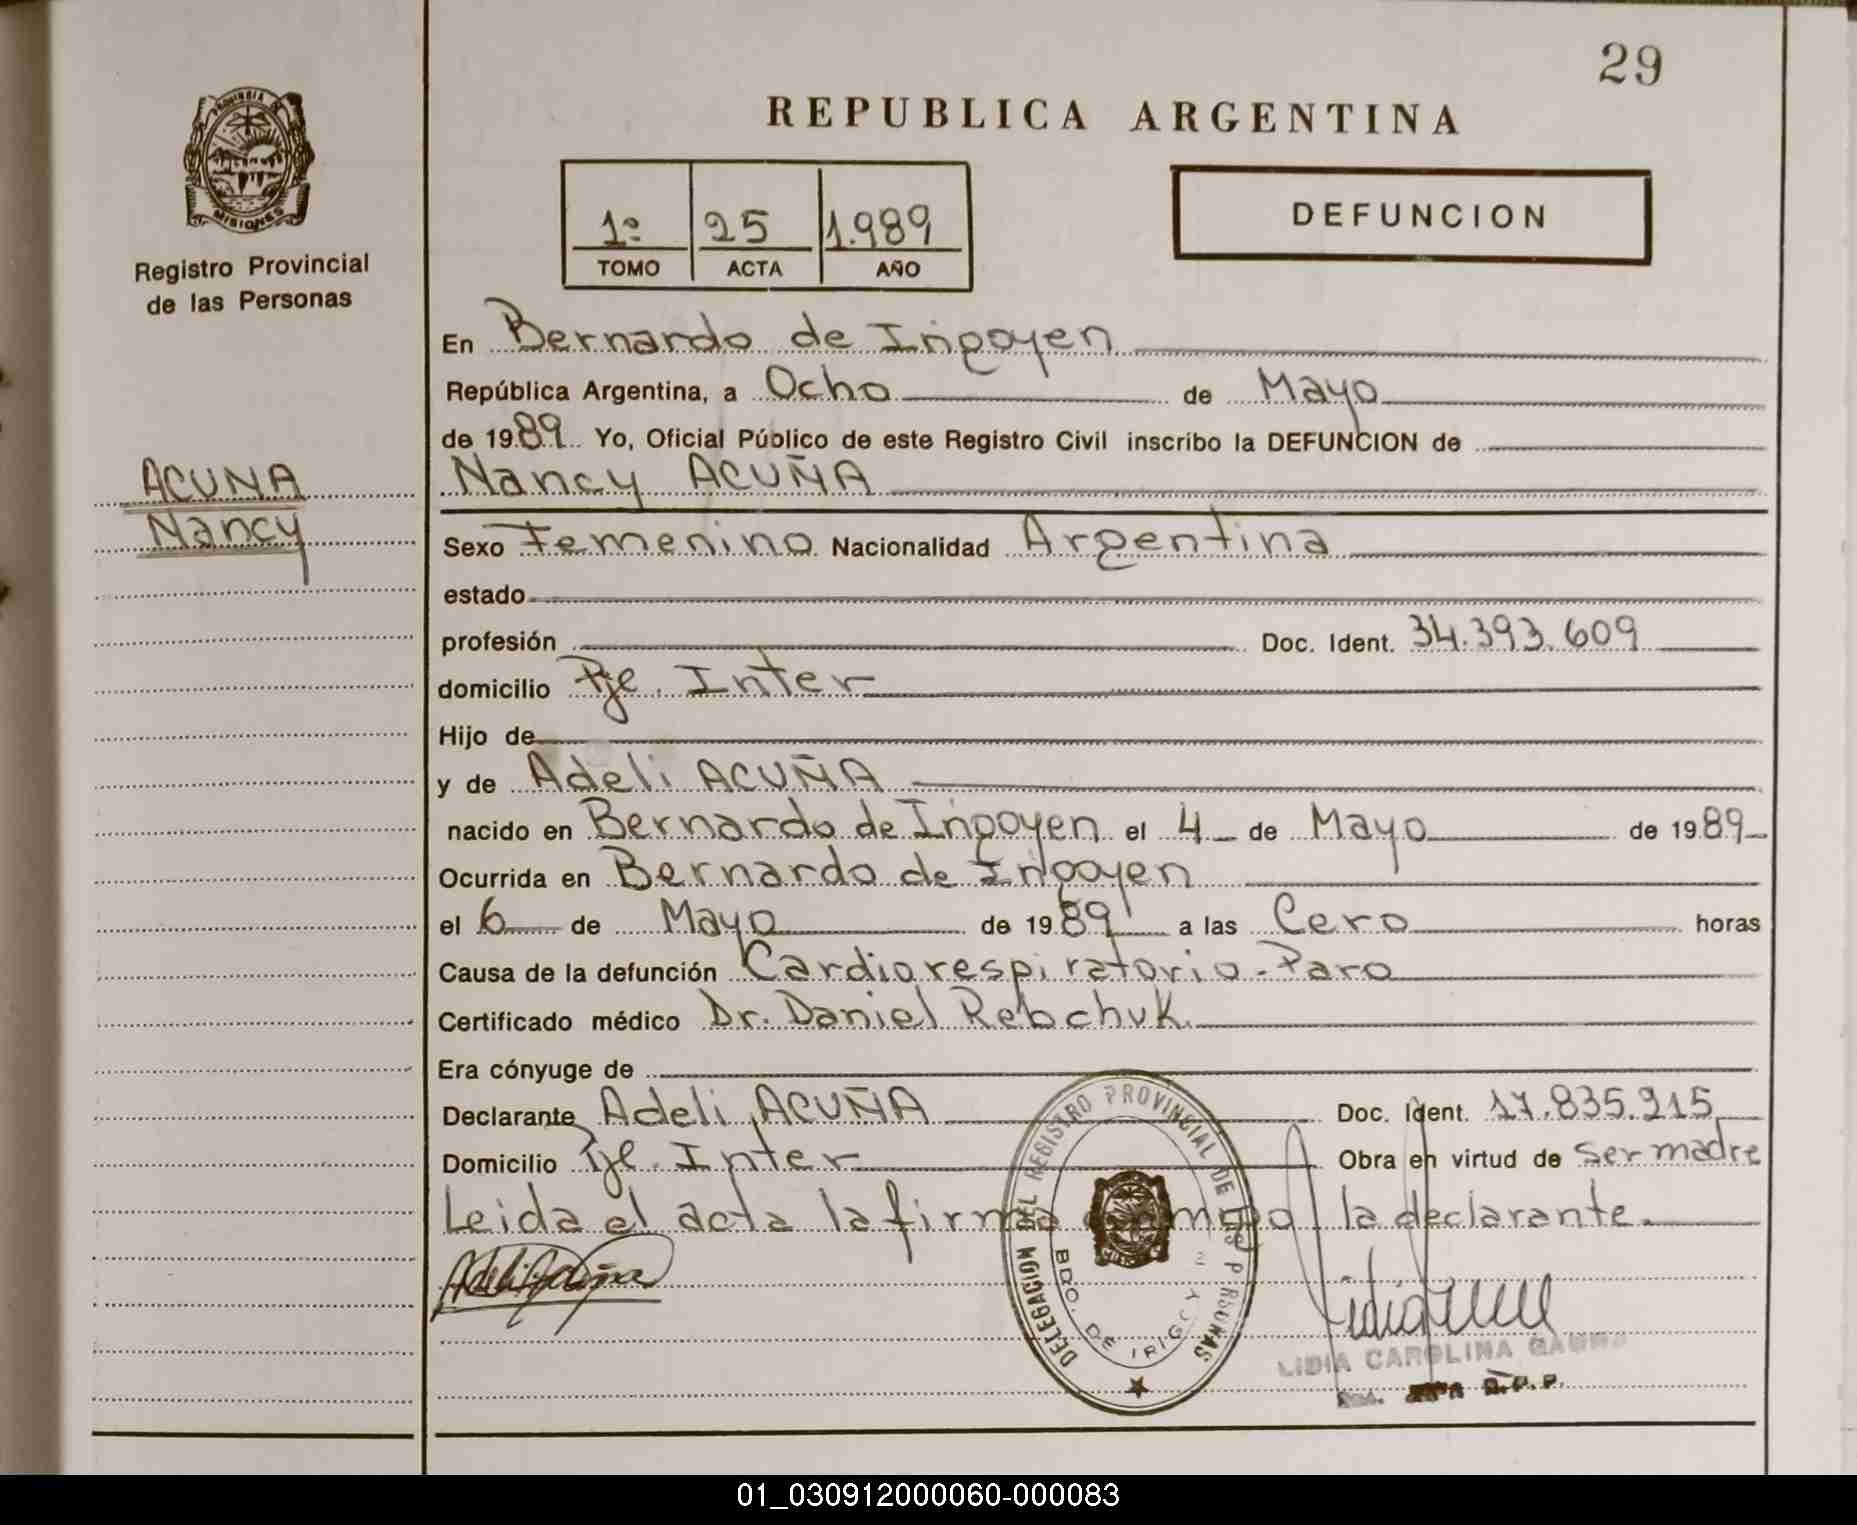 29
REPUBLICA ARGENTINA
PROVINCIA DE
MISIONES
Registro Provincial
de las Personas
1º 25 1.989
TOMO ACTA AÑO
DEFUNCION
En Bernardo de Irigoyen
República Argentina, a Ocho de Mayo
de 1989 Yo, Oficial Público de este Registro Civil inscribo la DEFUNCION de
ACUNA
Nancy
Nancy ACUÑA
Sexo Femenino Nacionalidad Argentina
estado
profesión Doc. Ident. 34.393.609
domicilio Pje. Inter
Hijo de
y de Adeli ACUÑA
nacido en Bernardo de Irigoyen el 4 de Mayo de 1989
Ocurrida en Bernardo de Irigoyen
el 6 de Mayo de 1989 a las Cero horas
Causa de la defunción Cardiorespiratorio-Paro
Certificado médico Dr. Daniel Rebchuk
Era cónyuge de
Declarante Adeli ACUÑA Doc. Ident. 17.835.215
Domicilio Pje. Inter Obra en virtud de ser madre
Leida el acta la firma conmigo la declarante.
Adeli Acuña
DELEGACION DEL REGISTRO PROVINCIAL DE LAS PERSONAS
BDO. DE IRIGOYEN
LIDIA CAROLINA
R.P.P.
01_030912000060-000083